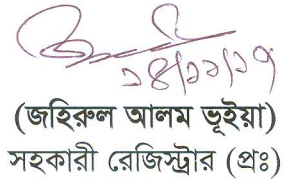 ১৪/১১/১৭
(জহিরুল আলম ভূইয়া)
সহকারী রেজিস্ট্রার (প্রঃ)